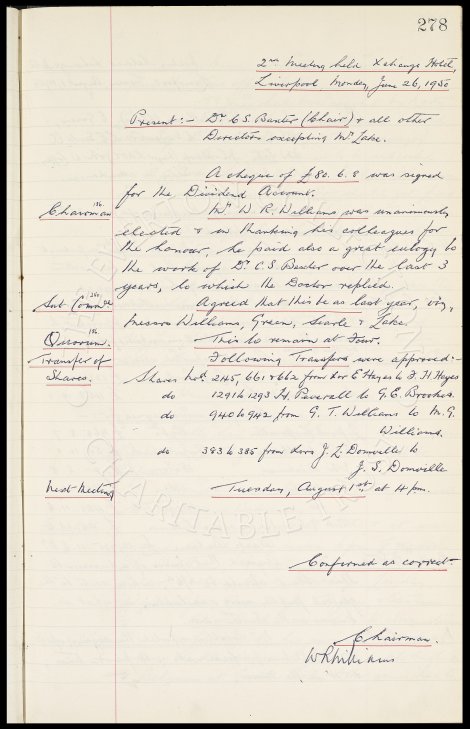 278
2nd Meeting held Xchange Hotel,
Liverpool Monday, June 26, 1950
Present:- Dr C S Baxter (Chair) & all other
Directors excepting Mr Lake.
A cheque of £80. 6. 8 was signed
for the Dividend Account.
Chairman 156. Mr W. R. Williams was unanimously
elected & in thanking his colleagues for
the honour, he paid also a great eulogy to
the work of Dr C. S. Baxter over the last 3
years, to which the Doctor replied.
Agreed that this be as last year, viz,
Messrs Williams, Green, Searle & Lake
Quorum. 156. This to remain at Four.
Transfer of Shares. Following Transfers were approved:-
Shares Nos. 2145, 661 & 662 from E Hayes to F. H. Hayes
do 1291 to 1293 H. Peverall to G. E. Brookes.
do 940 to 942 from G. T. Williams to M. G.
Williams.
do 383 to 385 from J. L. Domville to
J. S. Domville
Next Meeting Tuesday, August 1st at 4 pm.
CHARITABLE
Confirmed as correct.
Chairman.
W R Williams